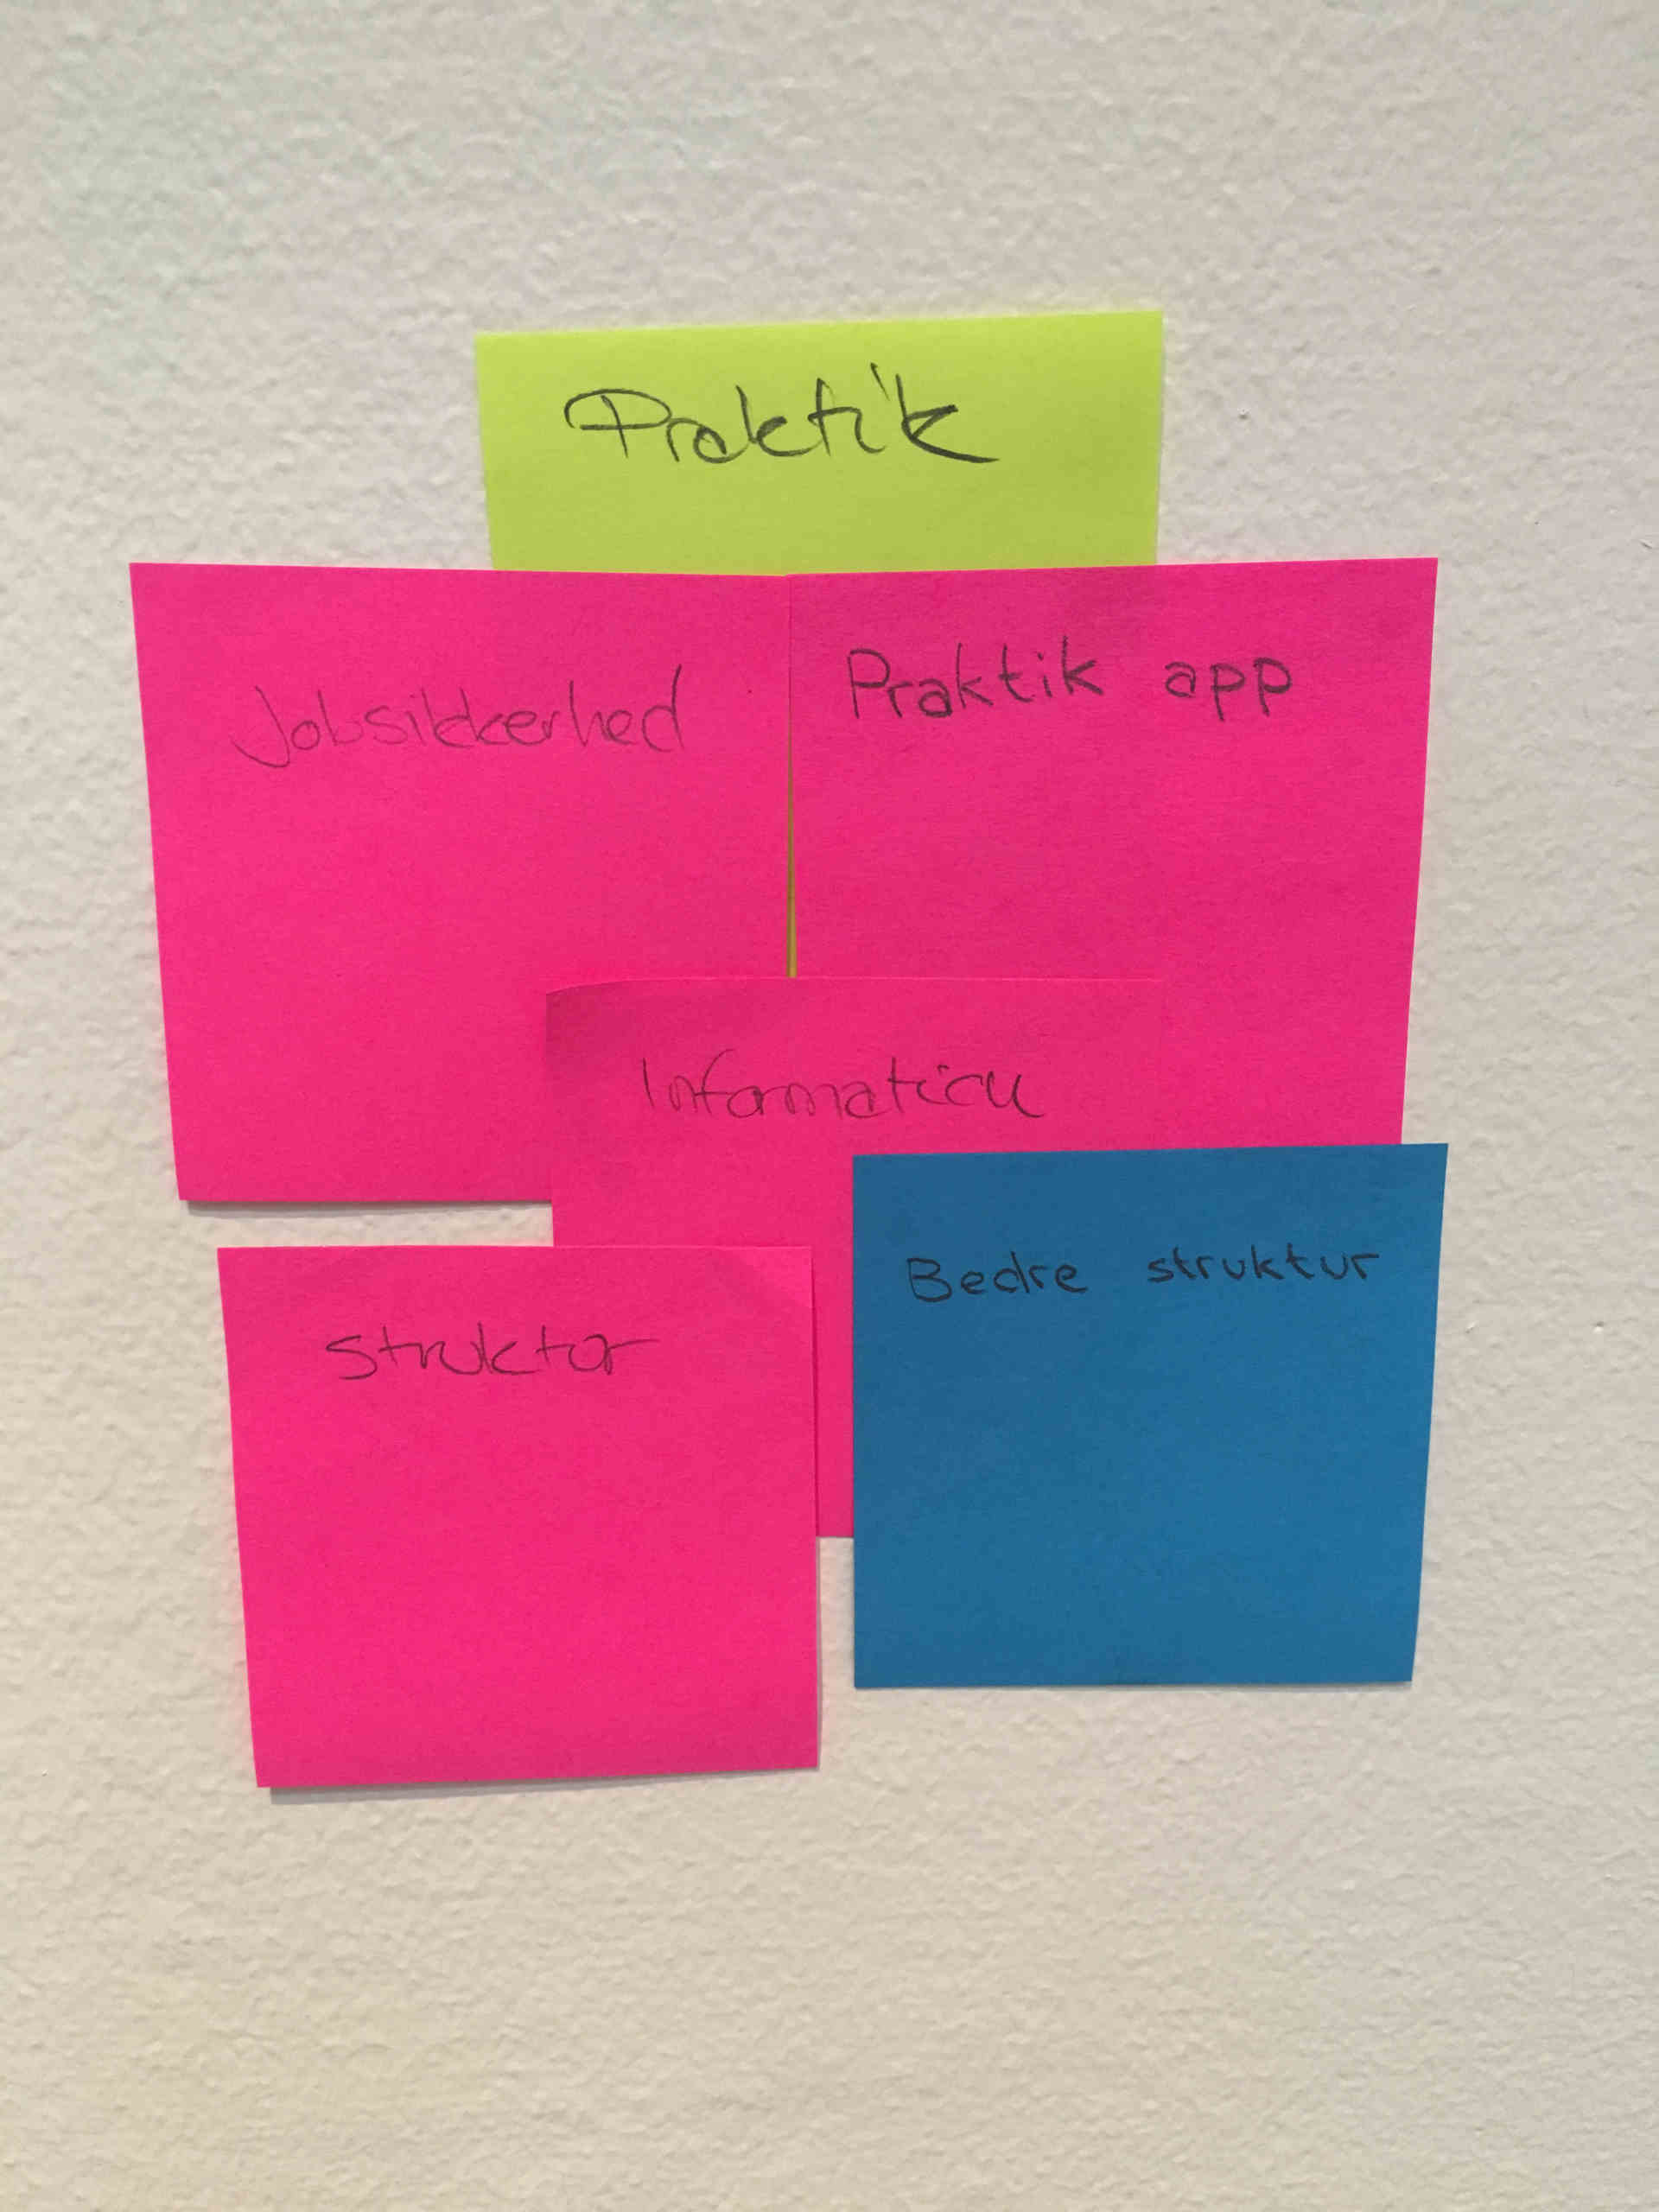 Praktik
Jobsikkerhed
Praktik app
Information
Struktur
Bedre struktur